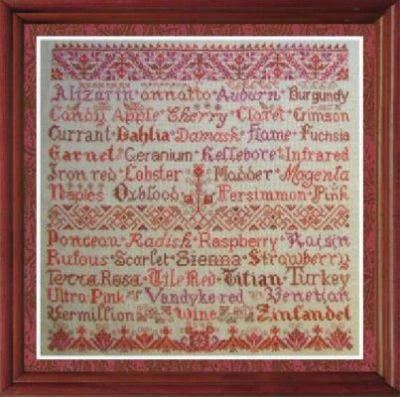 Alizarin annatto Auburn Burgundy
Candy Apple Cherry Claret Crimson
Currant Dahlia Damask flame Fuchsia
Garnet Geranium Hellebore Infrared
Iron red Lobster Madder Magenta
Naples Oxblood Persimmon Pink
Ponceau Radish Raspberry Raisin
Rufous Scarlet Sienna Strawberry
Terra Rosa Tile Red Titian Turkey
Ultra Pink Vandyke red Venetian
Vermillion wine Zinfandel